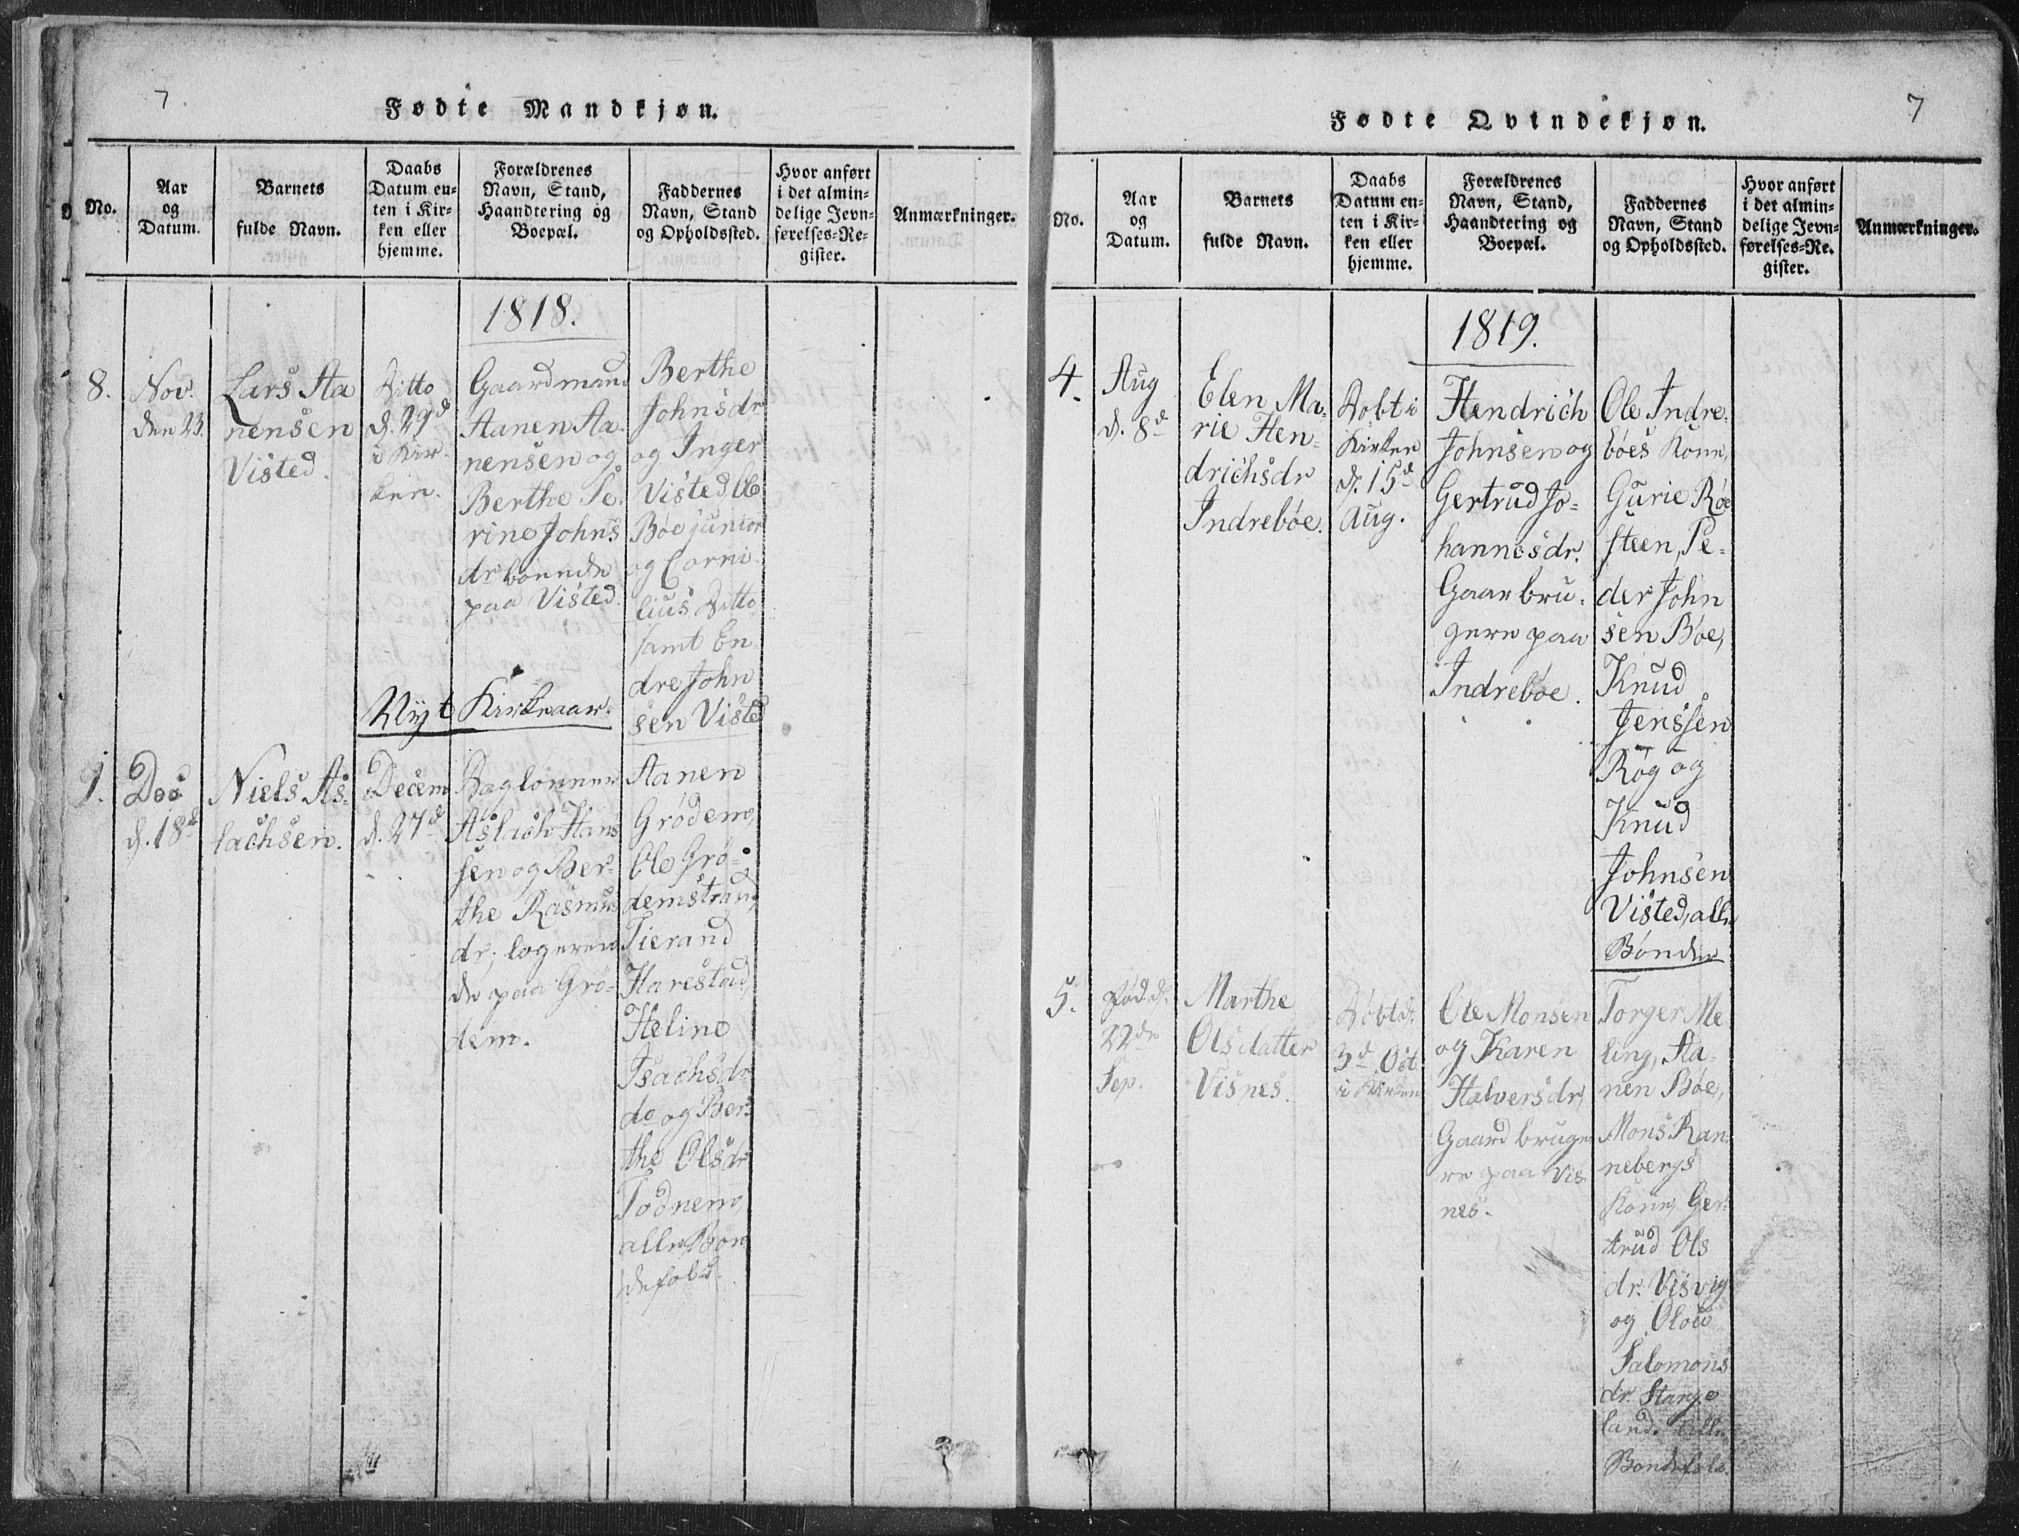 7
Fødte Mandkjøn.
No.
Aar
og
Datum.
Barnets
fulde Navn.
Daabs
Datum en-
ten i Kir-
ken eller
hjemme.
Forældrenes
Navn, Stand,
Haandtering og
Boepæl.
Faddernes
Navn, Stand
og Opholdssted.
Hvor anført
i det almin-
delige Jevn-
førelses-Re-
gister.
Anmærkninger.
1818.
8.
Nov.
den 23.
Lars Aa
nensen
Visted.
Ditto
d. 29d
i Kir-
ken.
Gaardmand
Aanen Aa-
nensen og
Berthe Se-
rine Johns
dr boende
paa Visted.
Berthe
Johnsdr
og Inger
Visted Ole
Boe junior
og Corni-
lius Ditto
samt En
dre John
sen Visted
Nyt Kirkeaar.
1.
Dec
d. 18d
Niels As-
lachsen.
Decem
d. 27d
Daglønner
Aslach Hans
sen og Ber-
the Rasmus
dr, logeren
de paa Grø-
dem.
Aanen
Grødem,
Ole Grø-
demstrand,
Tierand
Harestad,
Heline
Isachsdr
do og Ber-
the Olsdr
Todnem,
alle Bøn
defolk.
7
Fødte Qvindekjøn.
No.
Aar
og
Datum.
Barnets
fulde Navn.
Daabs
Datum en-
ten i Kir-
ken eller
hjemme.
Forældrenes
Navn, Stand,
Haandtering og
Boepæl.
Faddernes
Navn, Stand
og Opholdssted.
Hvor anført
i det almin-
delige Jevn-
førelses-Re-
gister.
Anmærkninger.
1819.
4.
Aug
d. 8d
Elen Ma-
rie Hen-
drichsdr
Indrebøe.
Døbt i
Kirken
d. 15d
Aug.
Hendrich
Johnsen og
Gertrud Jo-
hannesdr.
Gaarbru-
gere paa
Indrebøe.
Ole Indre-
bøes Kone,
Gurie Røe
steen, Pe-
der John
sen Bøe,
Knud
Jenssen
Røg og
Knud
Johnsen
Visted, alle
Bønder
5.
Fød. d.
22de
Sep.
Marthe
Olsdatter
Visnes.
Døbt d.
3d Oct.
i Kirken
Ole Monsen
og Karen
Halversdr,
Gaardbruge
re paa Vis-
nes.
Torger Me
ling, Aa-
nen Bøe,
Mons Ran
nebergs
Kone, Ger-
trud Ols
dr. Visvig
og Olou
Salomons
dr. Stange
land. Alle
Bondefolk.